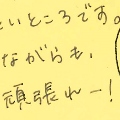 たいところです。
ながらも、
頑張れー!